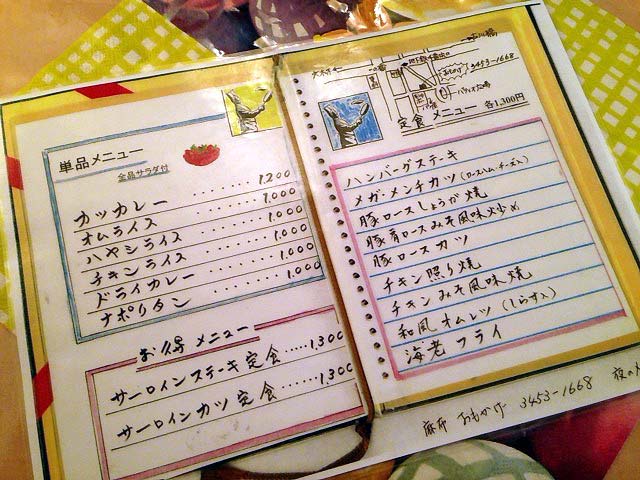 単品メニュー
全品サラダ付
カツカレー ........ 1,200
オムライス ........ 1,000
ハヤシライス ........ 1,000
チキンライス ........ 1,000
ドライカレー ........ 1,000
ナポリタン ........ 1,000
お得 メニュー
サーロインステーキ定食 ...... 1,300
サーロインカツ定食 ........ 1,300
3453-1668
定食メニュー 各1,300円
ハンバーグステキ
メガ・メンチカツ(ロースハム・チーズ入)
豚ロースしょうが焼
豚肩ロースみそ風味炒め
豚ロースカツ
チキン照り焼
チキンみそ風味焼
和風オムレツ(しらす入)
海老フライ
麻布 おもかげ 3453-1668 夜のメ